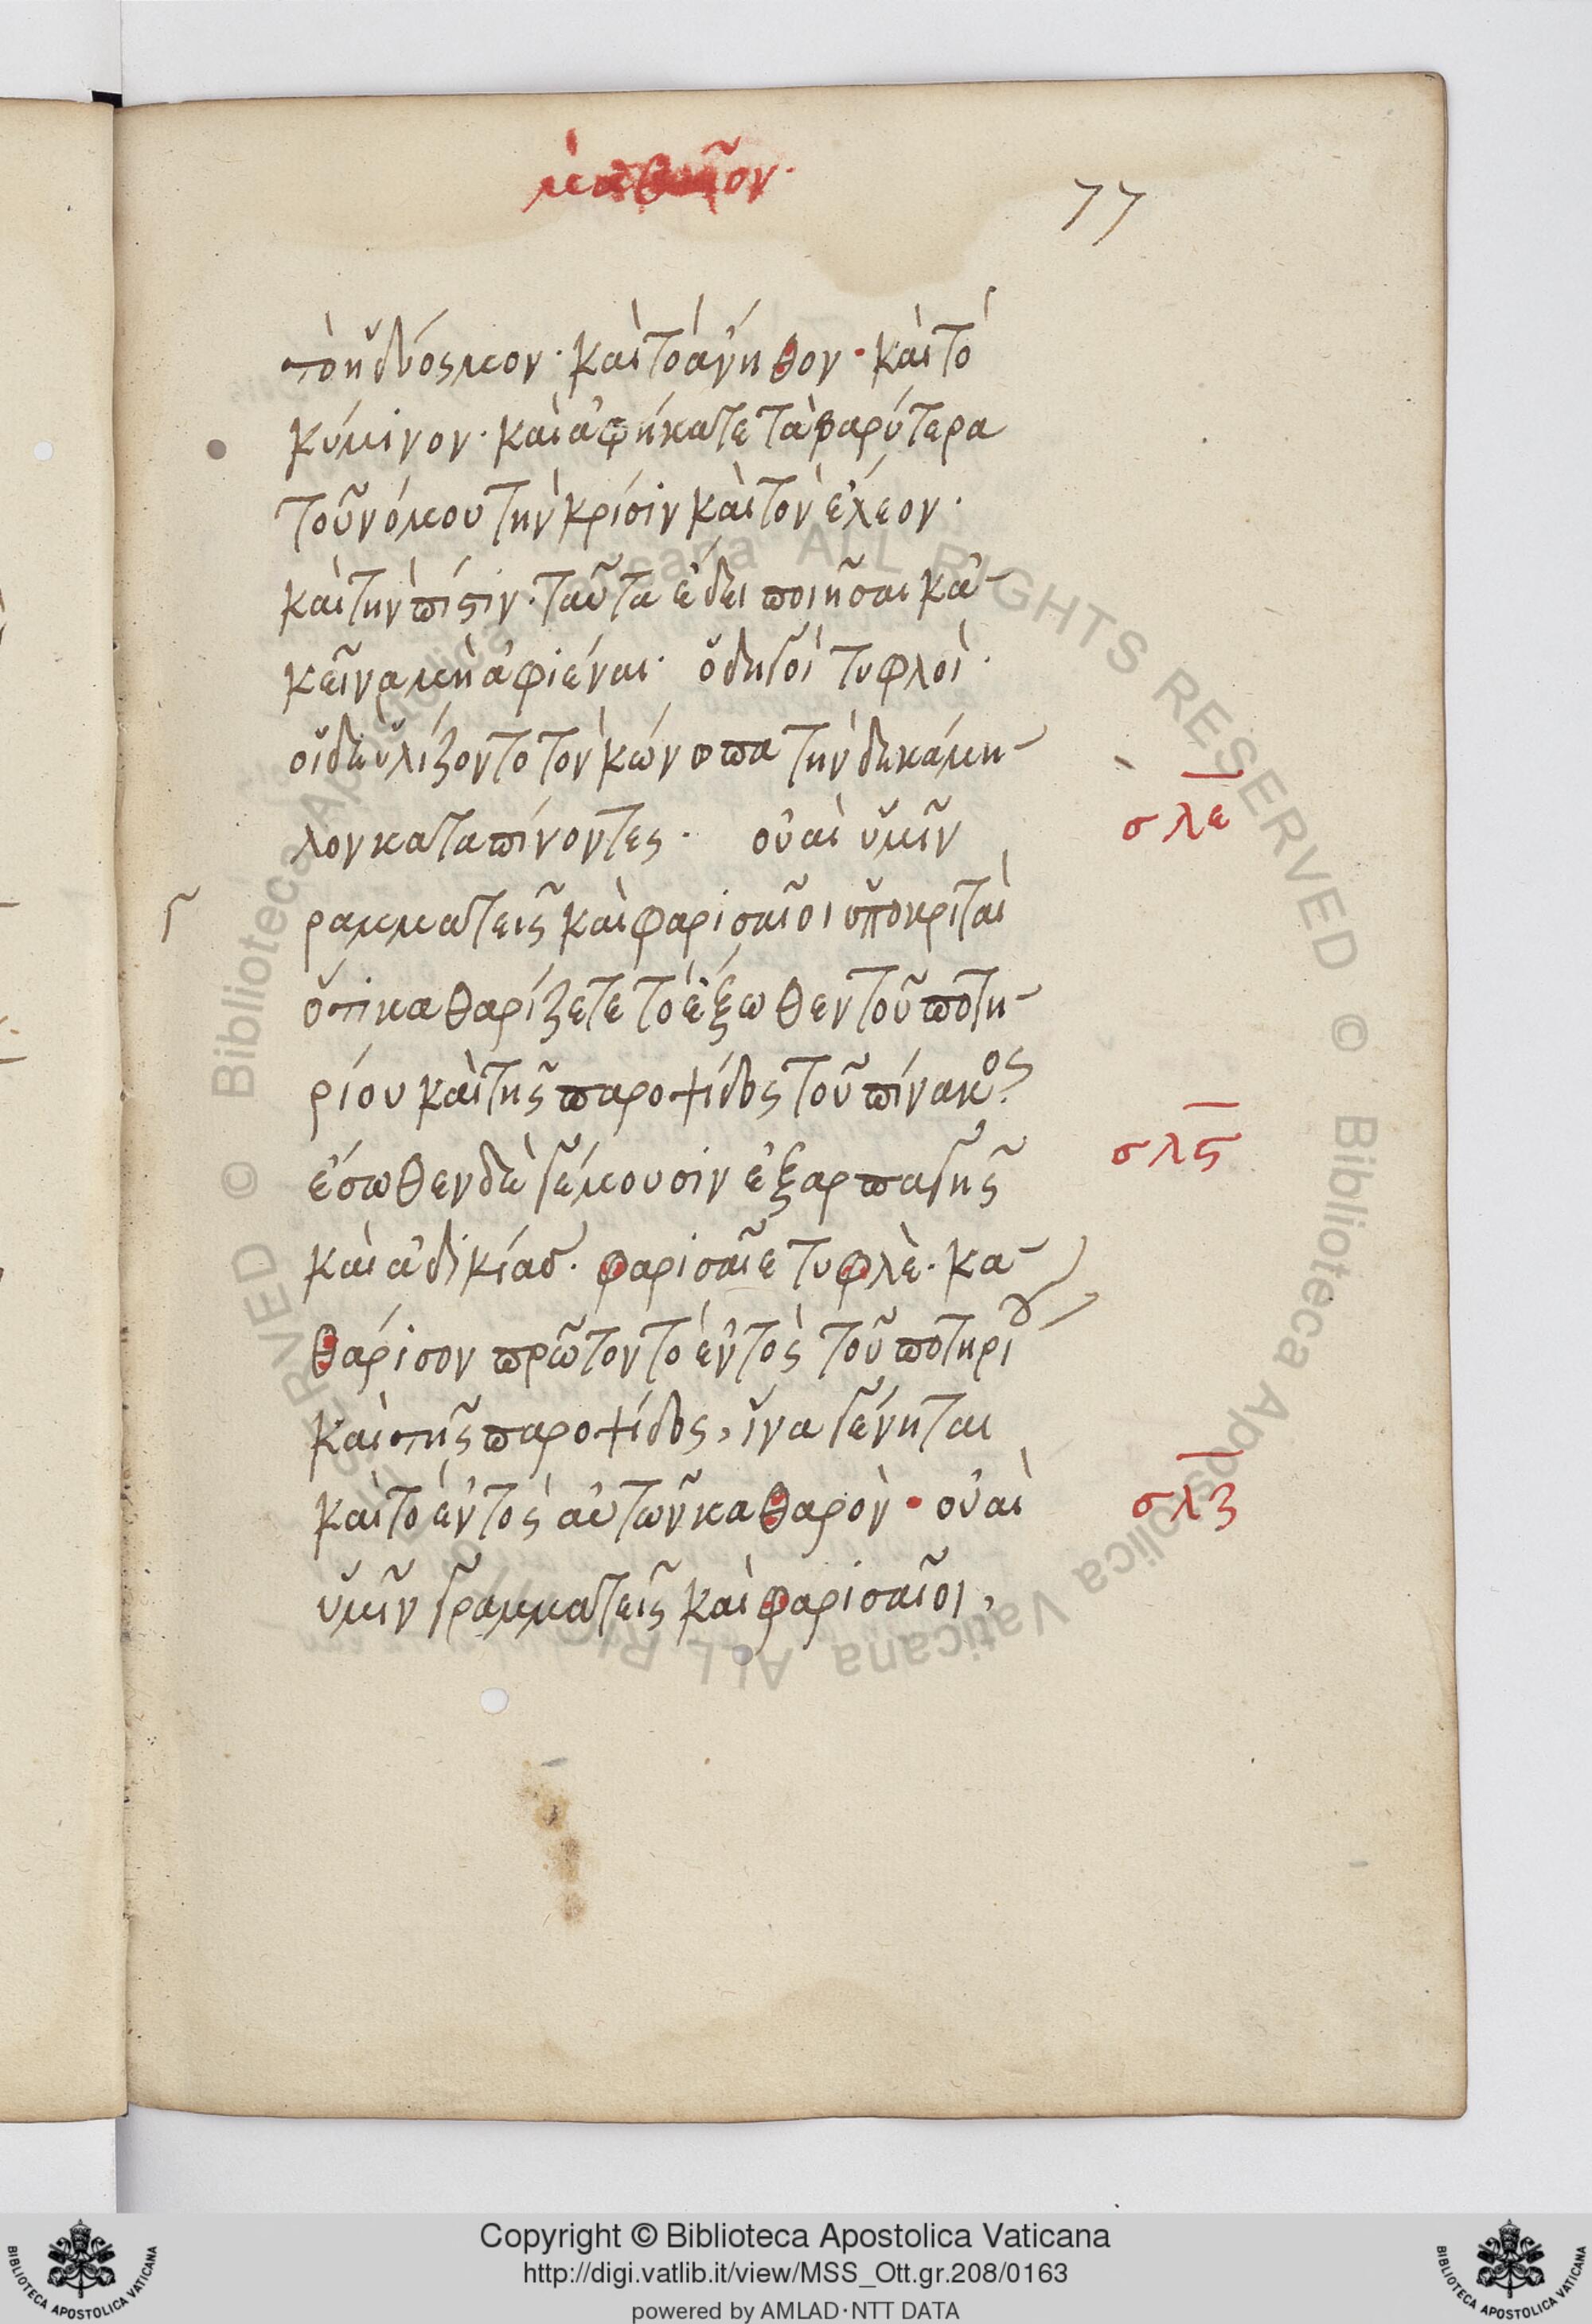 77
τὸ ἡδύοσμον· καὶ τὸ ἄνηθον· καὶ τὸ
κύμινον· καὶ ἀφήκατε τὰ βαρύτερα
τοῦ νόμου τὴν κρίσιν καὶ τὸν ἔλεον·
καὶ τὴν πίστιν· ταῦτα ἔδει ποιῆσαι κἀ-
κεῖνα μὴ ἀφιέναι· ὁδηγοὶ τυφλοὶ·
οἱ δὲ ὑλίζοντο τὸν κώνοπα τὴν δὲ κάμη-
λον καταπίνοντες· οὐαὶ ὑμῖν
σλε
γραμματεῖς καὶ φαρισαῖοι ὑποκριταὶ
ὅτι καθαρίζετε τὸ ἔξωθεν τοῦ ποτη-
ρίου καὶ τῆς παροψίδος τοῦ πίνακος·
ἔσωθεν δὲ γέμουσιν ἐξ ἁρπαγῆς
σλϛ
καὶ ἀδικίας· φαρισαῖε τυφλὲ· κα-
θάρισον πρῶτον τὸ ἐντὸς τοῦ ποτηρίου
καὶ τῆς παροψίδος, ἵνα γένηται
καὶ τὸ ἐντὸς αὐτῶν καθαρὸν· οὐαὶ
σλζ
ὑμῖν γραμματεῖς καὶ φαρισαῖοι,
Biblioteca Apostolica Vaticana ALL RIGHTS RESERVED ©
Copyright © Biblioteca Apostolica Vaticana
http://digi.vatlib.it/view/MSS_Ott.gr.208/0163
powered by AMLAD·NTT DATA
BIBLIOTECA APOSTOLICA VATICANA
BIBLIOTECA APOSTOLICA VATICANA